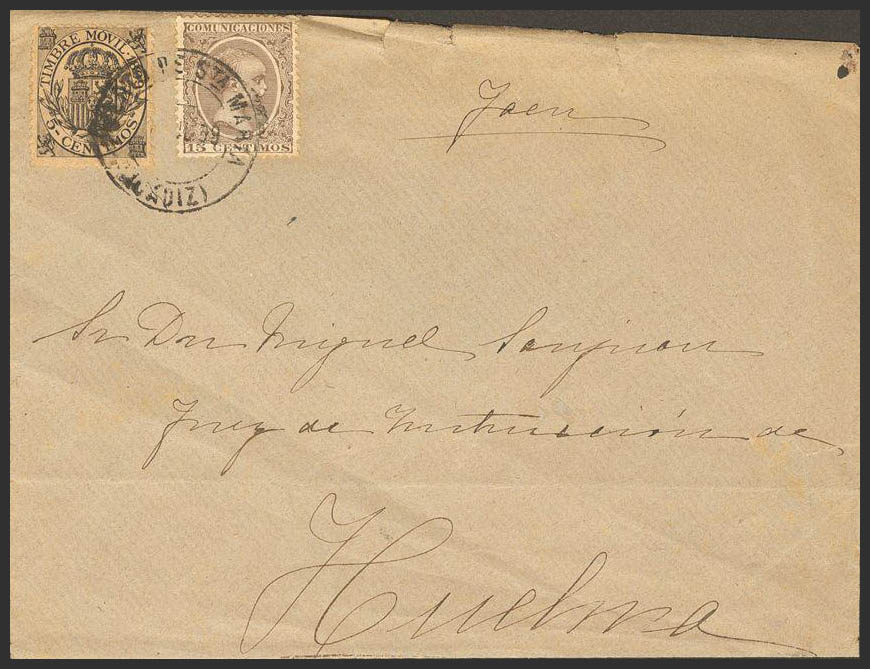 TIMBRE MOVIL
5 CENTIMOS
COMUNICACIONES
15 CENTIMOS
STA MARIA
(CADIZ)
Jaen
Sr Don Miguel Sanjuan
Juez de Instrucción de
Huelma